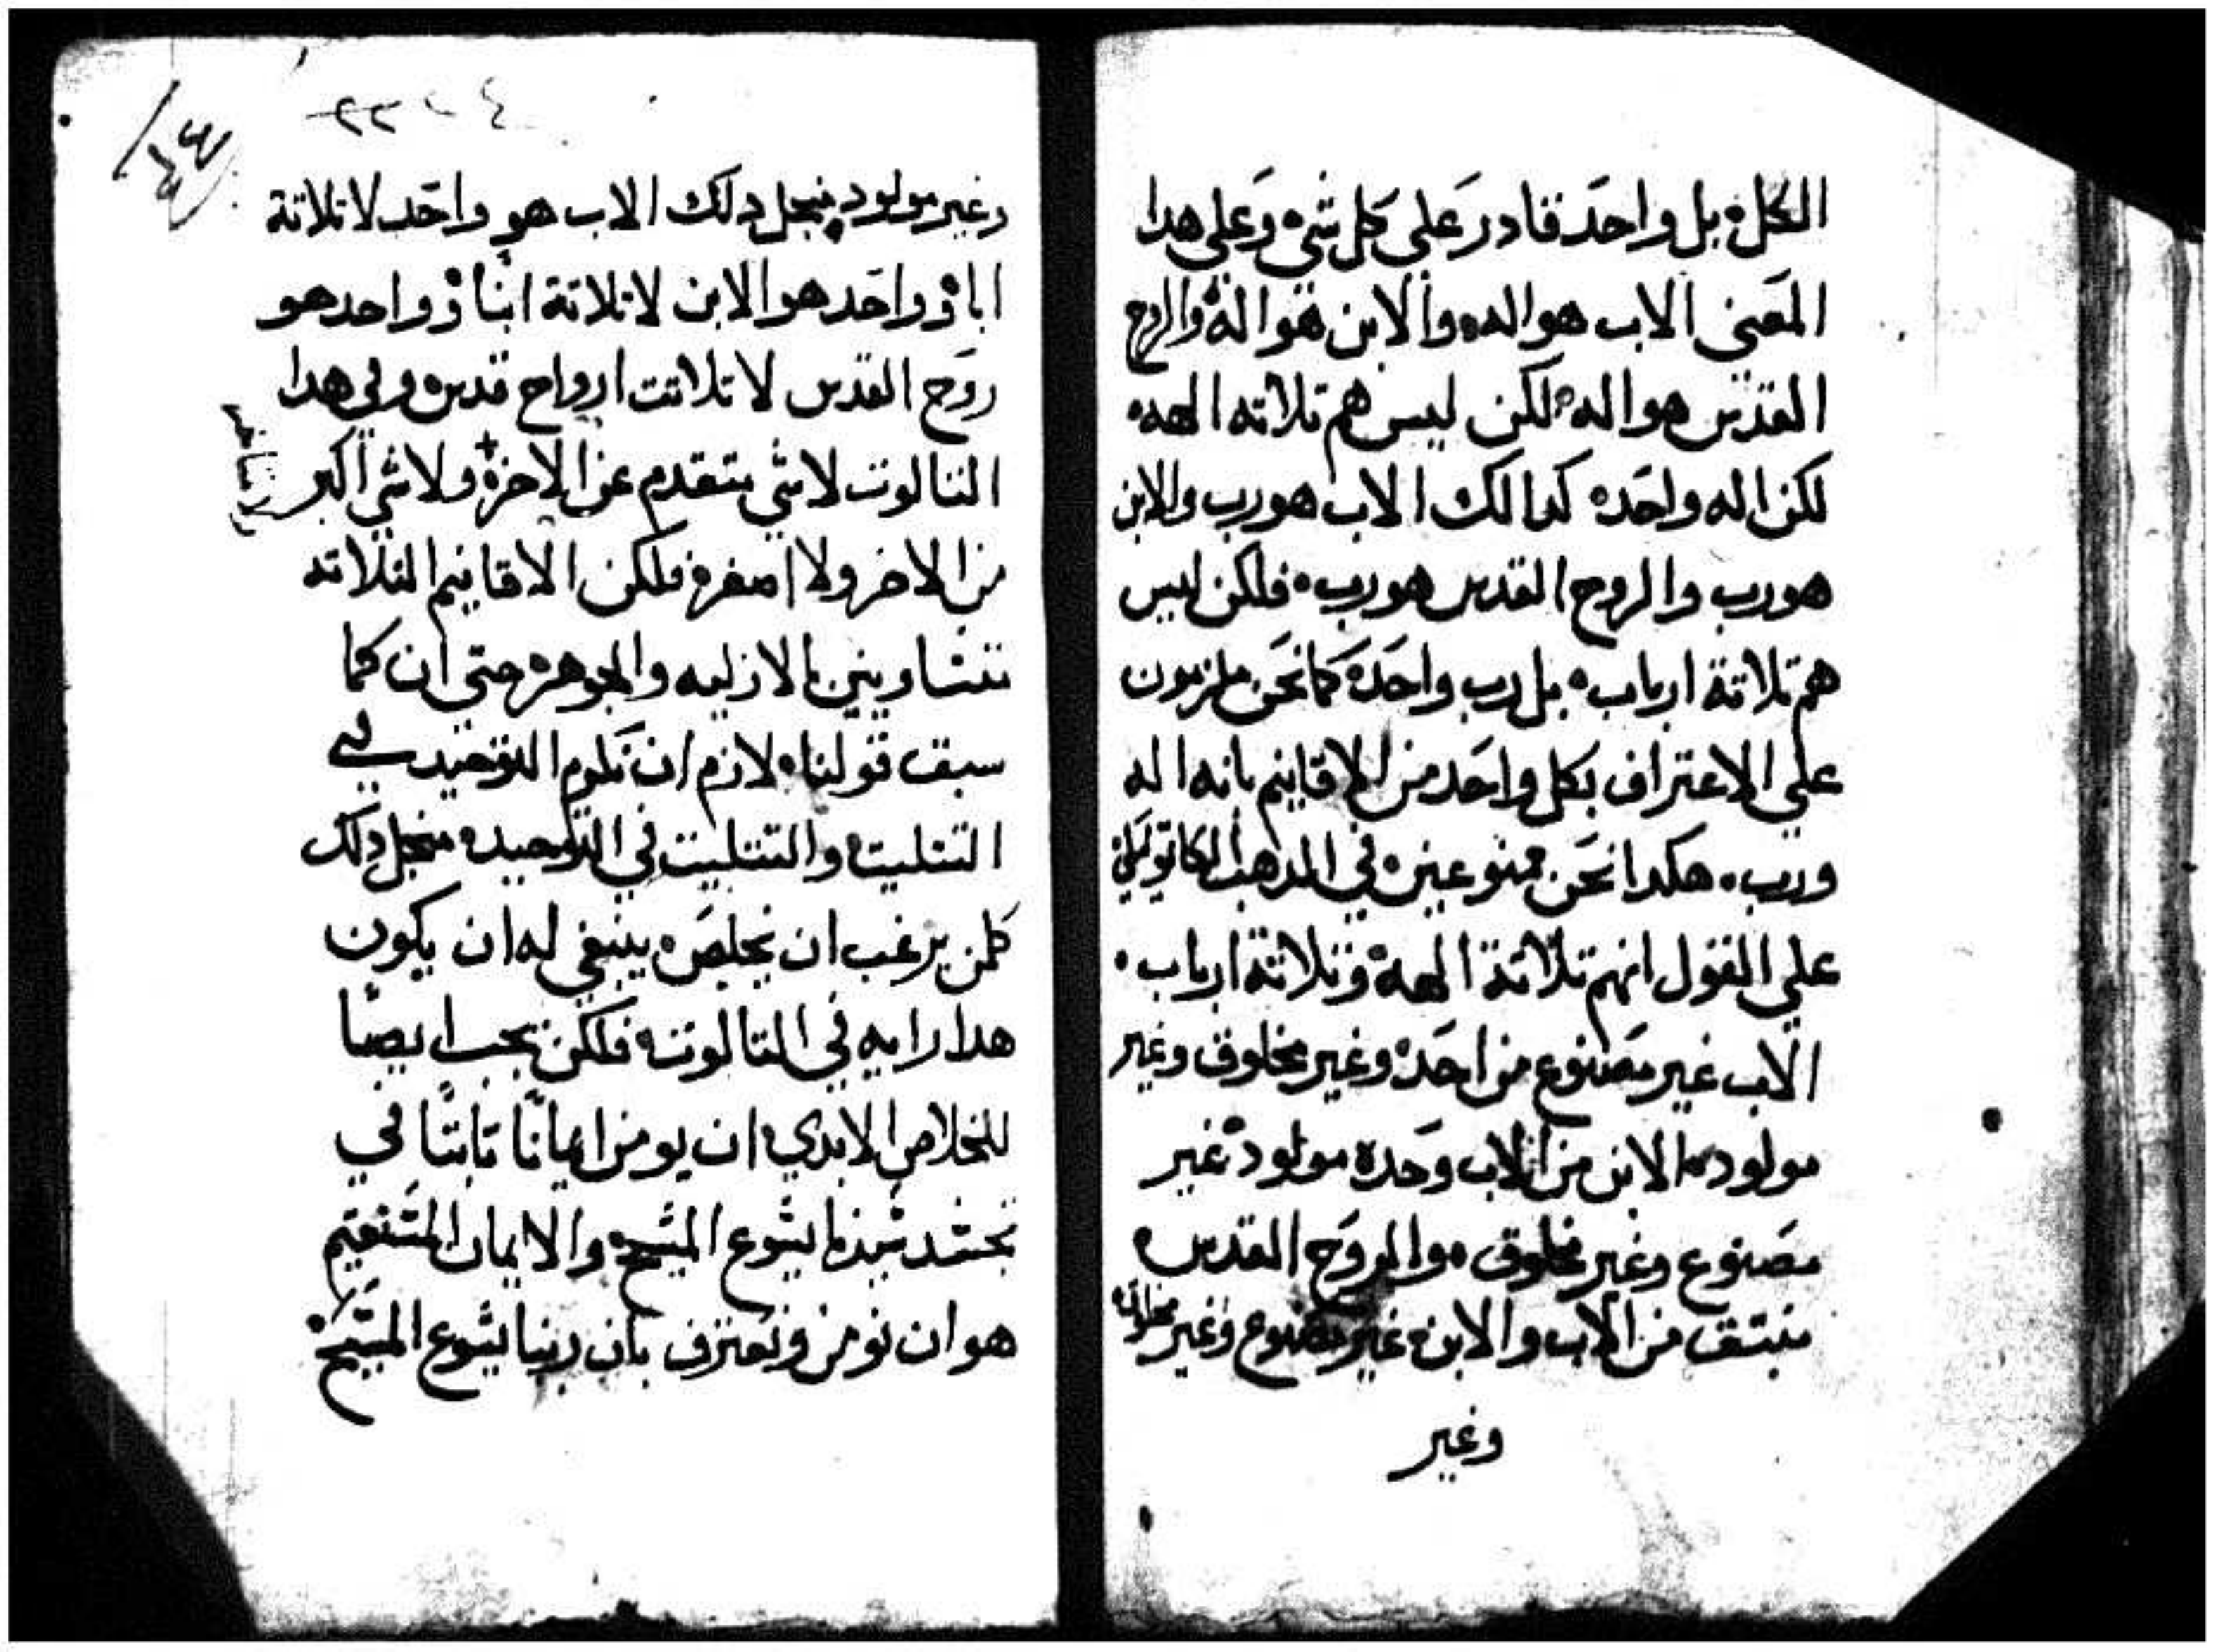 الكل ه بل واحد قادر على كل شي ه وعلى هدا
المعني الاب هو اله ه والابن هو اله ه والروح
القدس هو اله ه لكن ليس هم تلاته الهه ه
لكن اله واحد ه كدالك الاب هو رب والابن
هو رب والروح القدس هو رب ه فلكن ليس
هم تلاتة ارباب ه بل رب واحد ه كما نحن ملزمون
علي الاعتراف بكل واحد من الاقانيم بانه اله
ورب ه هكدا نحن ممنوعين ه في المدهب الكاتوليكي
علي القول انهم تلاتة الهة ه وتلاتة ارباب ه
الاب غير مصنوع من احد ه وغير مخلوق وغير
مولود ه الابن من الاب وحده مولود غير
مصنوع وغير مخلوق ه والروح القدس ه
منبتق من الاب والابن ه غير مصنوع وغير مخلوق
وغير
وغير مولود ه فمنجل دلك الاب هو واحد لا تلاتة
ابا ه وواحد هو الابن لا تلاتة ابنا ه وواحد هو
روح القدس لا تلاتت ارواح قدس ه وفي هدا
التالوت لا شي متقدم عن الاخر ه ولا شي اكبر
من الاخر ولا اصغر ه فلكن الاقانيم التلاته
متساويين بالازليه والجوهر ه حتي ان كما
سبق قولنا ه لازم ان نكرم التوحيد في
التتليت ه والتتليت في التوحيد ه فمنجل دلك
كلمن يرغب ان يخلص ه ينبغي له ان يكون
هدا رايه في التالوت ه فلكن يجب ايضًا
للخلاص الابدي ه ان يومن ايمانًا تابتًا في
تجسد سيدنا يسوع المسيح ه والايمان المستقيم
هو ان نومن ونعترف بان ربنا يسوع المسيح ه